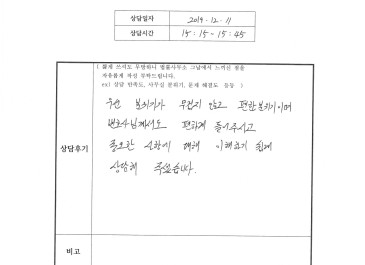 상담일자 2019. 12. 11
상담시간 15:15 - 15:45
( 짧게 쓰셔도 무방하니 법률사무소 그날에서 느끼신 점을
자유롭게 작성 부탁드립니다.
ex) 상담 만족도, 사무실 분위기, 문제 해결도 등등 )
우선 분위기가 무겁지 않고 편한 분위기이며
변호사님께서도 편하게 들어주시고
상담후기
중요한 사항에 대해 이해하기 쉽게
상담해 주셨습니다.
비고